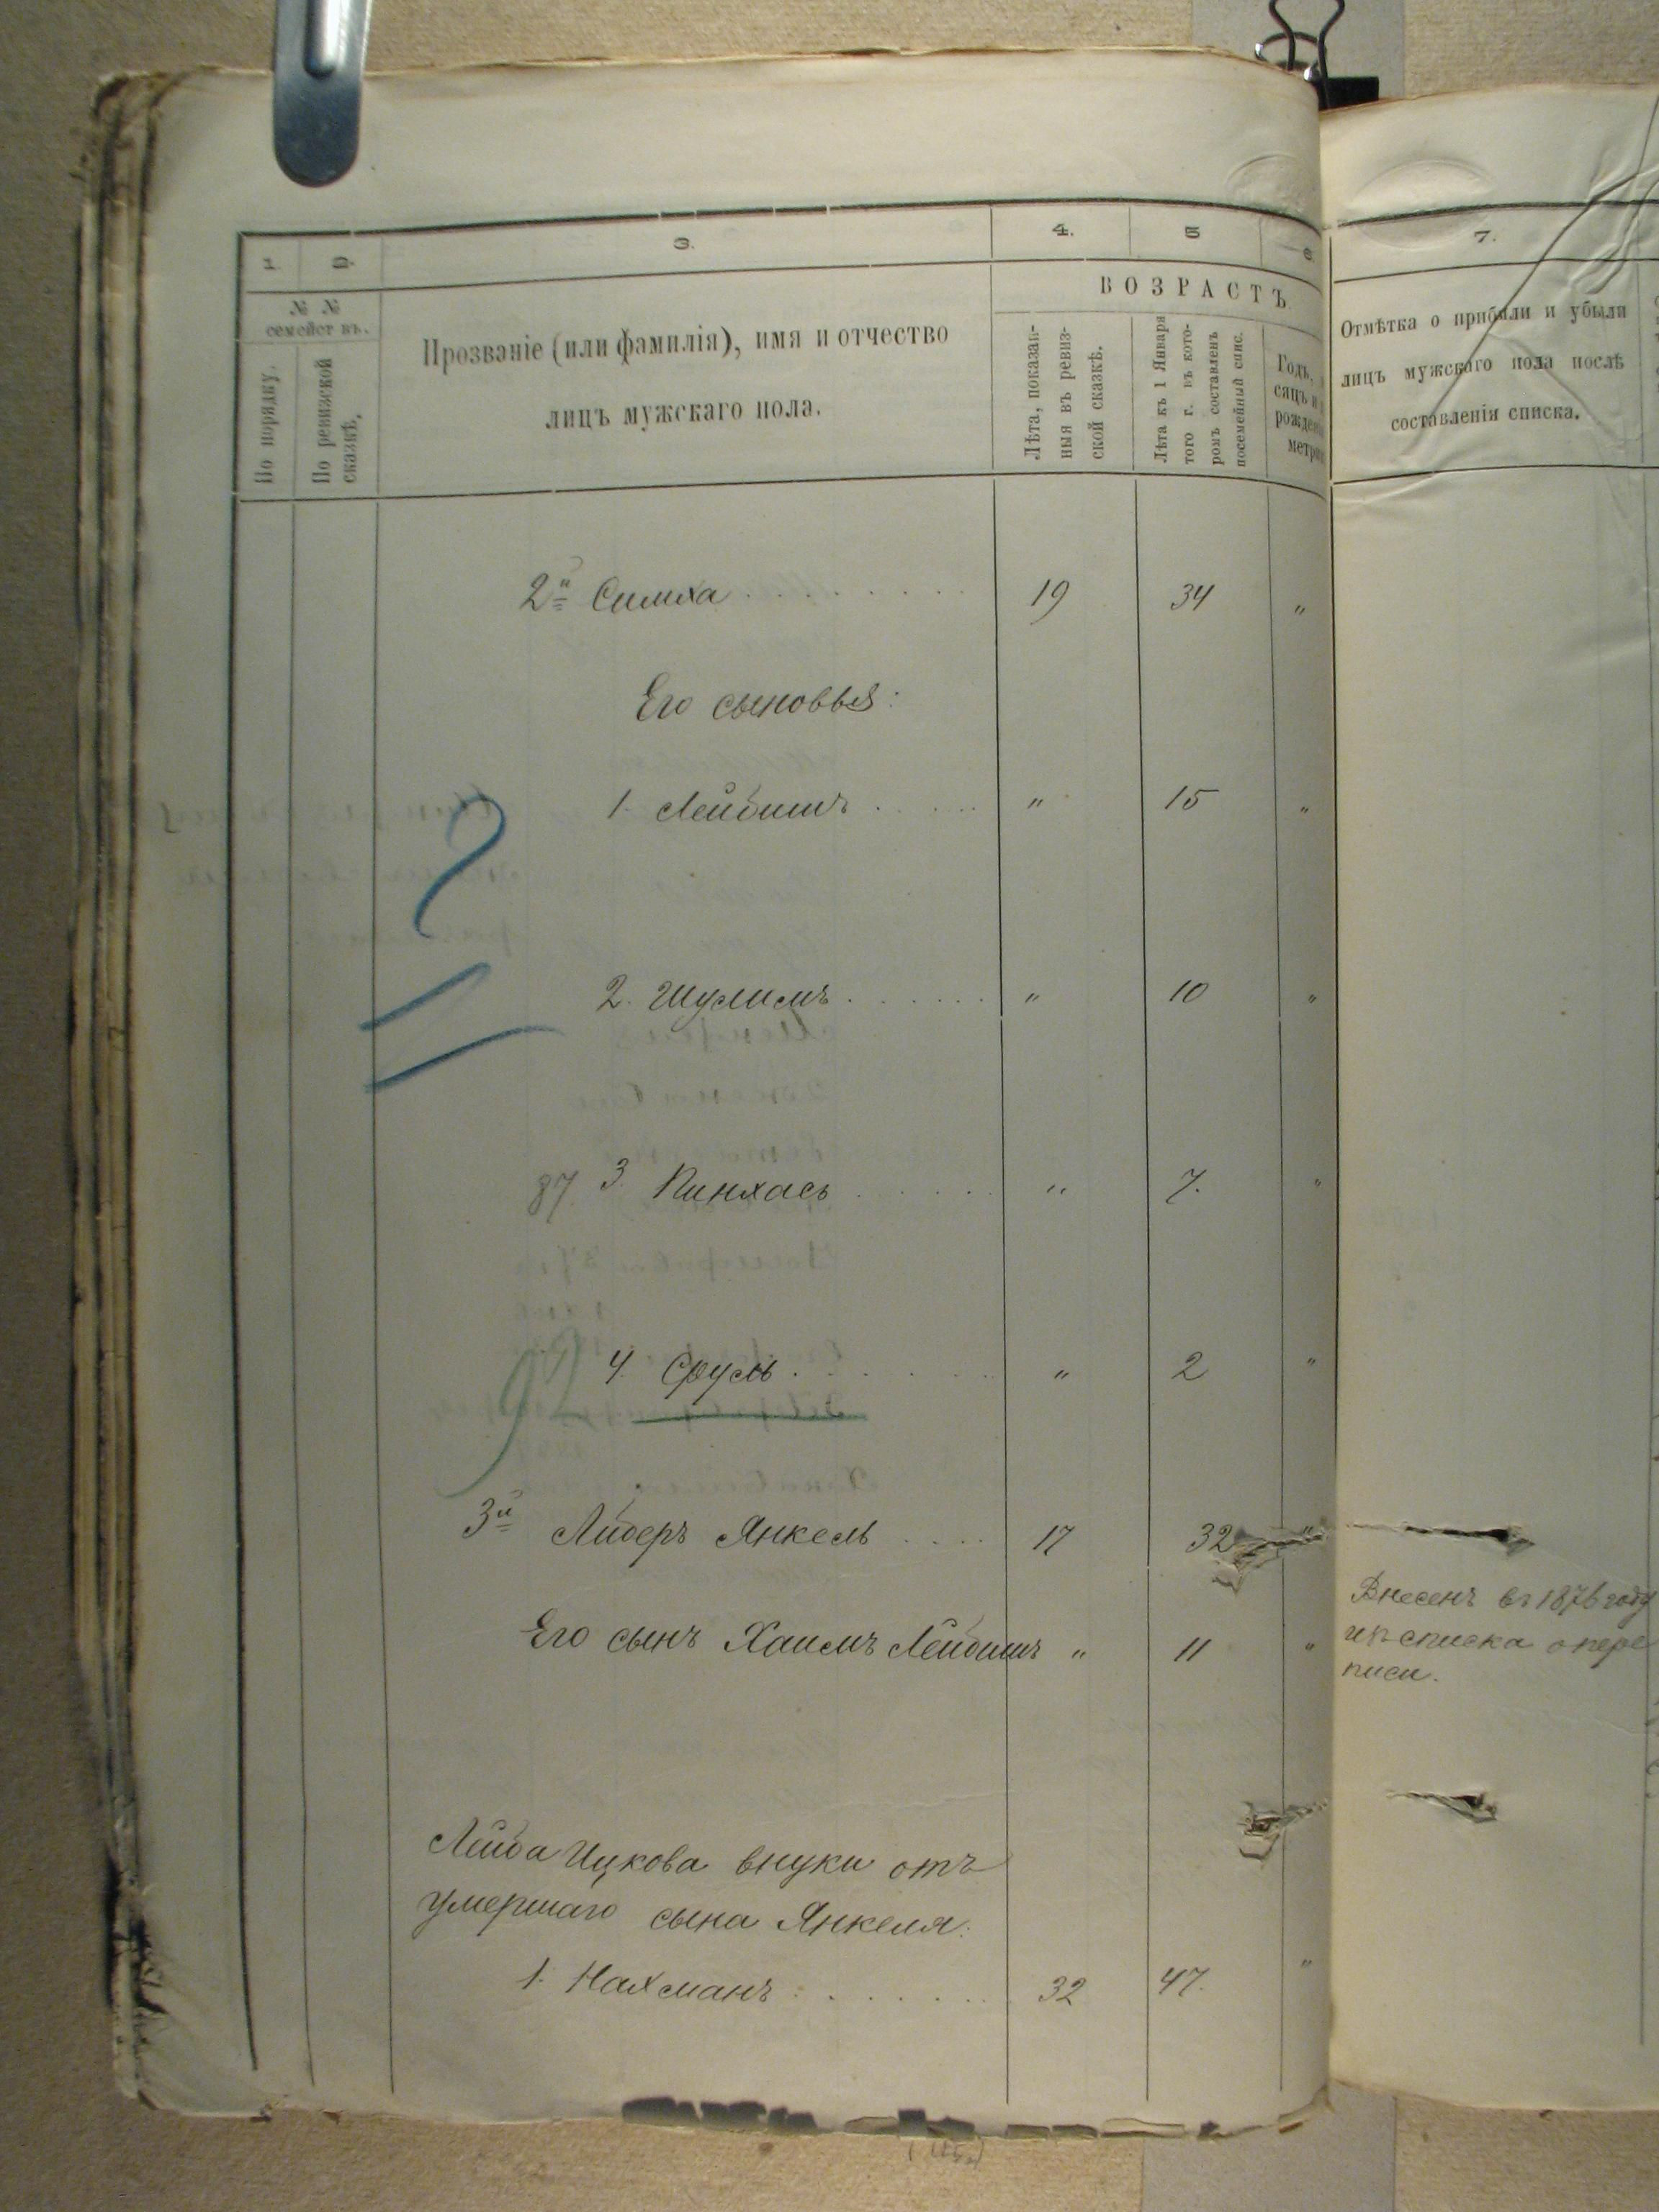 1. 2. 3. 4. 5 6.
№ №
семействъ.
По порядку.
По ревизской
сказкѣ.
Прозваніе (или фамилія), имя и отчество
лицъ мужскаго пола.
ВОЗРАСТЪ.
Лѣта, показан-
ныя въ ревиз-
ской сказкѣ.
Лѣта къ 1 Января
того г. въ кото-
ромъ составленъ
посемейный спис.
Годъ,
сяцъ и
рожден
метри
7.
Отмѣтка о прибыли и убыли
лицъ мужскаго пола послѣ
составленія списка.
2й Симха . . . . . . . . 19 34 "
Его сыновья:
1. Лейбишъ . . . . . " 15 "
2. Шулимъ . . . . . . " 10 "
87. 3. Пинхасъ . . . . . " 7. "
92 4. Сруль . . . . . . . " 2 "
3й Либеръ Янкель . . . . 17 32 "
Его сынъ Хаимъ Лейбишъ " 11 "
Внесенъ въ 1876 году
изъ списка о пере
писи.
Лейба Ицкова внуки отъ
умершаго сына Янкеля:
1. Нахманъ . . . . . . . 32 47. "